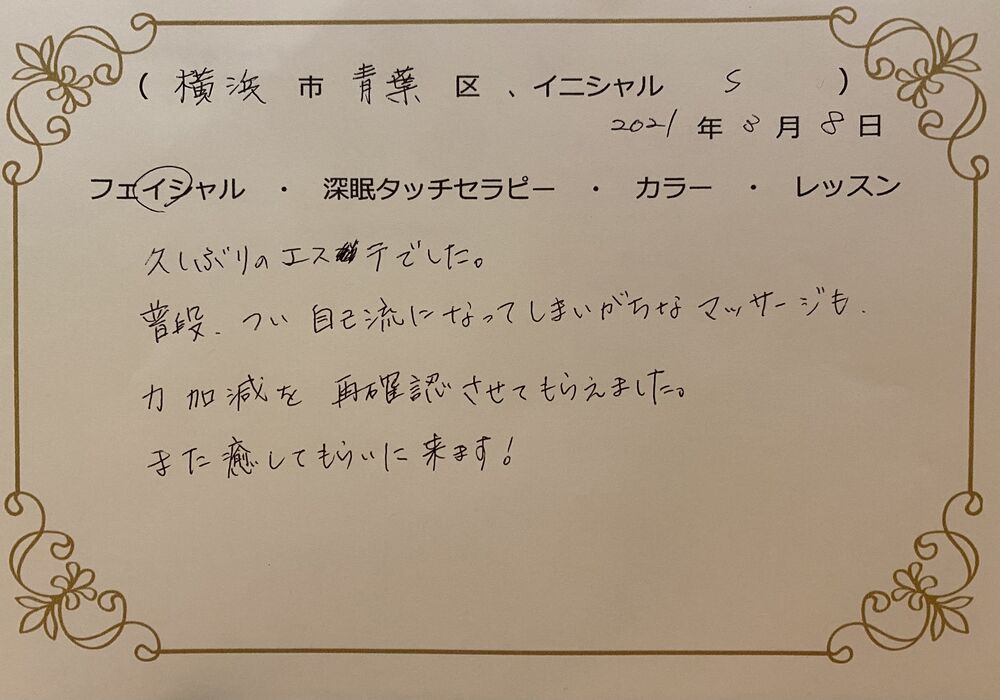 (横浜市青葉区、イニシャル S )
2021年3月8日
フェイシャル ・ 深眠タッチセラピー ・ カラー ・ レッスン
久しぶりのエステでした。
普段、つい自己流になってしまいがちなマッサージも、
力加減を再確認させてもらえました。
また癒してもらいに来ます!